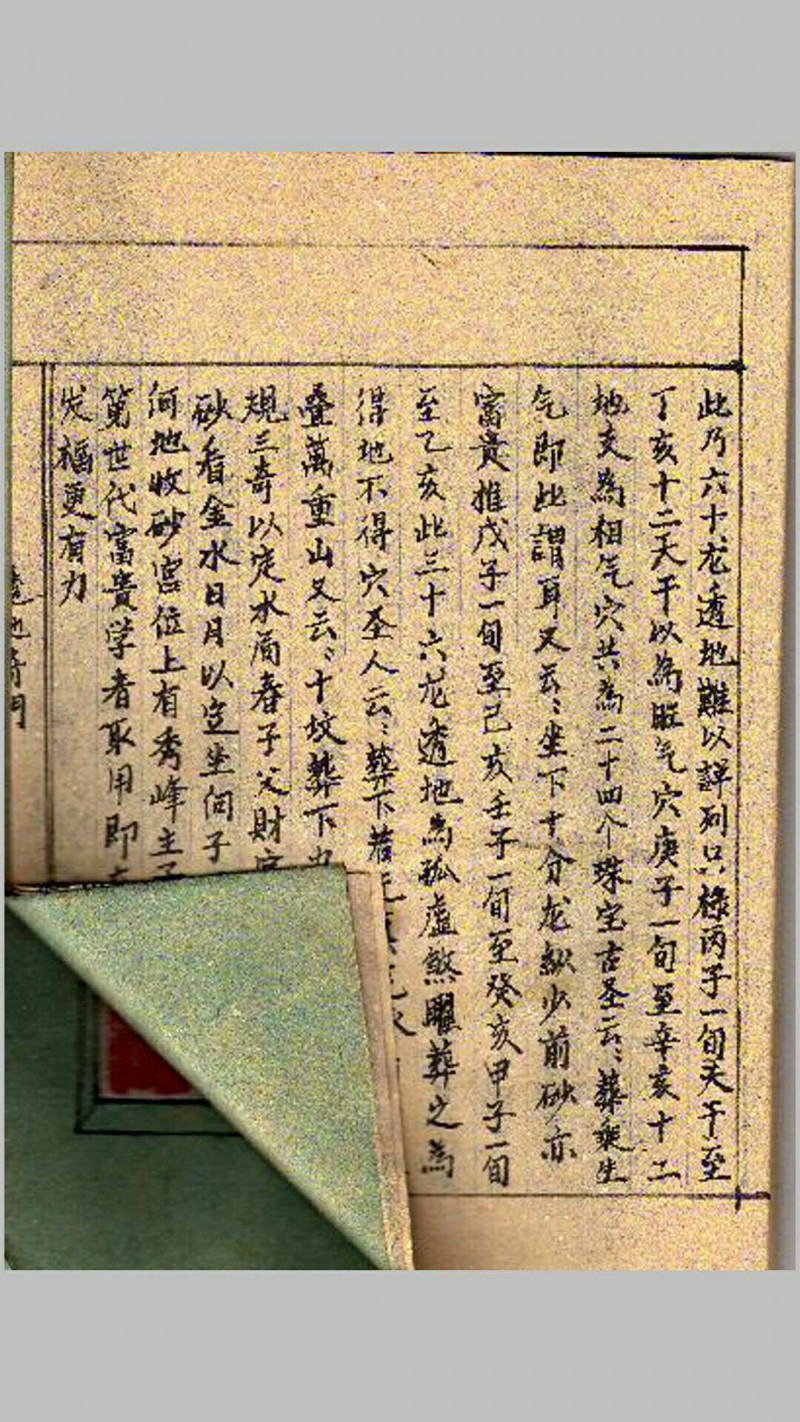 此乃六十龙透地難以詳列只祿丙子一旬天干至
丁亥十二天干以為旺气穴庚子一旬至辛亥十二
地支為相气穴共為二十四个珠宝古圣云：葬乘生
气即此謂耳又云：坐下十分龙縱少前砂亦
富貴推戊子一旬至己亥壬子一旬至癸亥甲子一旬
至乙亥此三十六龙透地為孤虛煞曜葬之為
得地不得穴圣人云：葬下若
叠萬重山又云：十坟葬下
規三奇以定水局看子父財官
砂看金水日月以定坐何子
何地收砂宮位上有秀峰主子
第世代富貴学者取用即
发福更有力
透地奇门